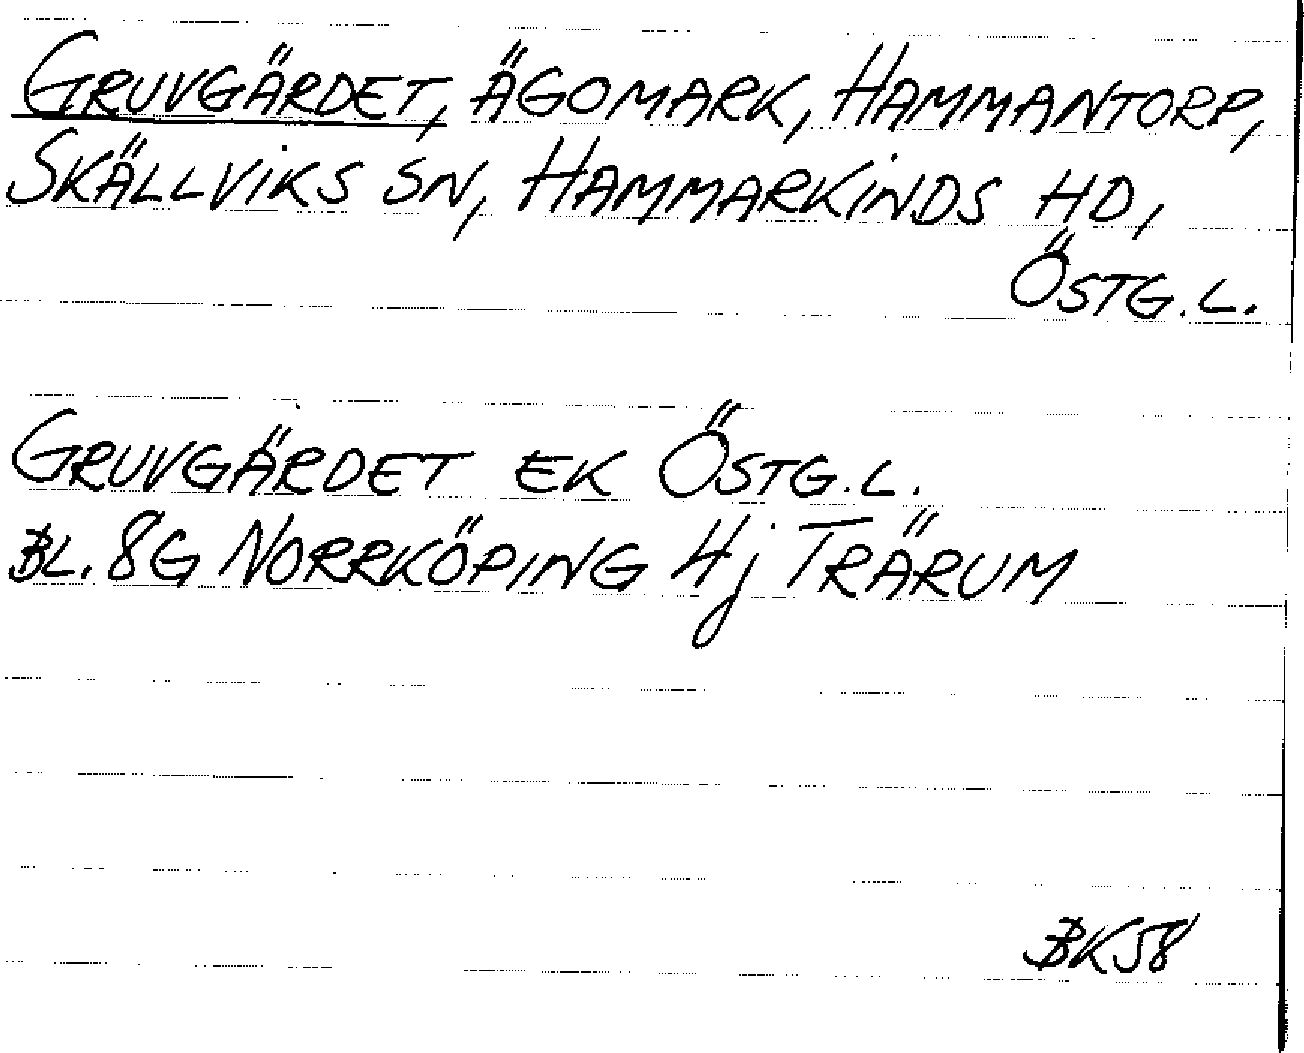 GRUVGÄRDET, ÄGOMARK, HAMMANTORP,
SKÄLLVIKS SN, HAMMARKINDS HD,
ÖSTG.L.
GRUVGÄRDET EK ÖSTG.L.
BL. 8G NORRKÖPING 4j TRÄRUM
BK58